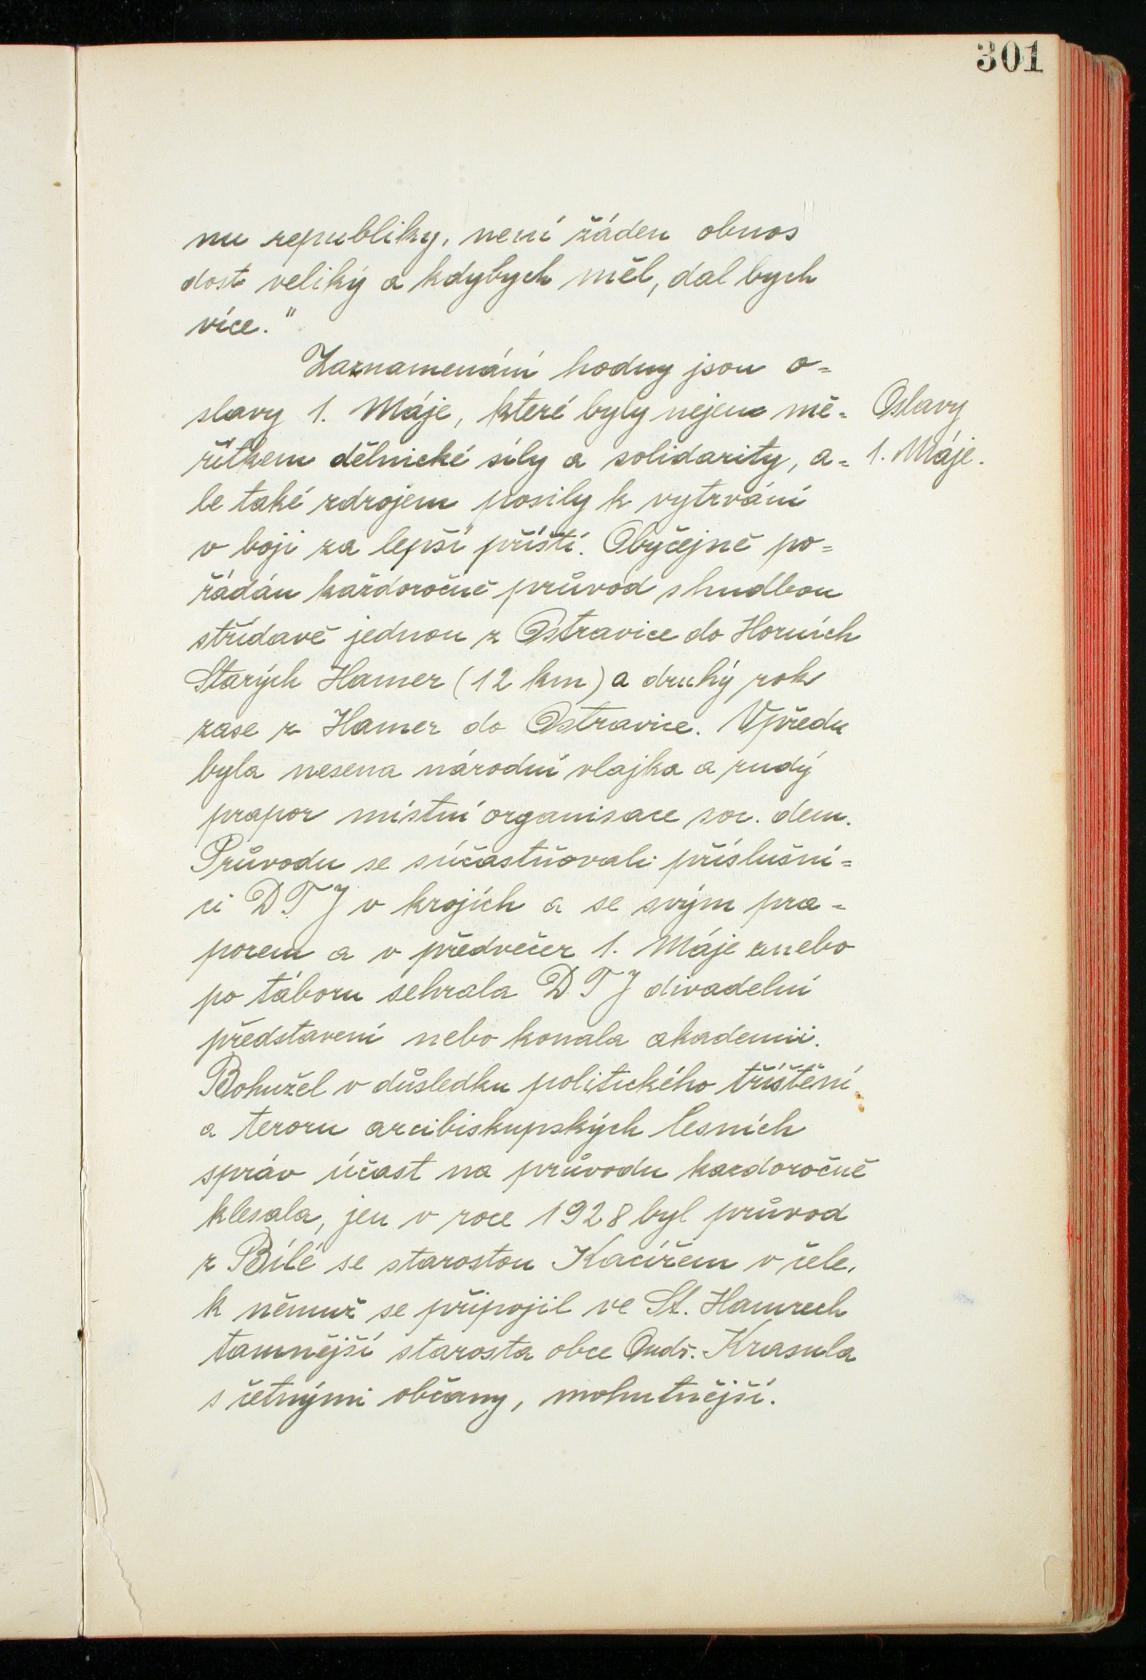 301
nu republiky, není žáden obnos
dost veliký a kdybych měl, dal bych
více."
Zaznamenání hodny jsou o=
slavy 1. Máje, které byly nejen mě=
Oslavy
1. Máje.
řítkem dělnické síly a solidarity, a=
le také zdrojem posily k vytrvání
v boji za lepší příští. Obyčejně po=
řádán každoročně průvod s hudbou
střídavě jednou z Ostravice do Horních
Starých Hamer (12 km) a druhý rok
zase z Hamer do Ostravice. Vpředu
byla nesena národní vlajka a rudý
prapor místní organisace soc. dem.
Průvodu se súčastňovali příslušní=
ci D.T.J v krojích a se svým pra=
porem a v předvečer 1. Máje anebo
po táboru sehrála D.T.J divadelní
představení nebo konala akademii.
Bohužel v důsledku politického tříštění
a teroru arcibiskupských lesních
správ účast na průvodu každoročně
klesala, jen v roce 1928 byl průvod
z Bílé se starostou Kacířem v čele,
k němuž se připojil ve St. Hamrech
tamnější starosta obce Ondř. Krasula
s četnými občany, mohutnější.